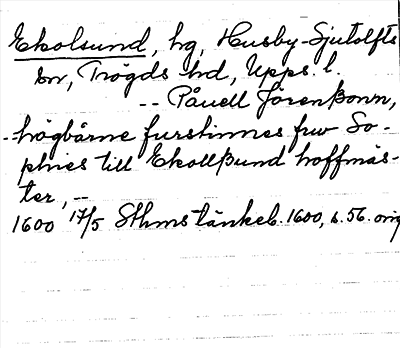 Ekolsund, hg, Husby-Sjutolfts
sn, Trögds hd, Upps. l.
-- Påuell Jörenßonn,
- högbårne furstinnes fru So-
phies till Ekollßund hoffmäs-
ter, --
1600 17/5 Sthms tänkeb. 1600, s. 56. orig